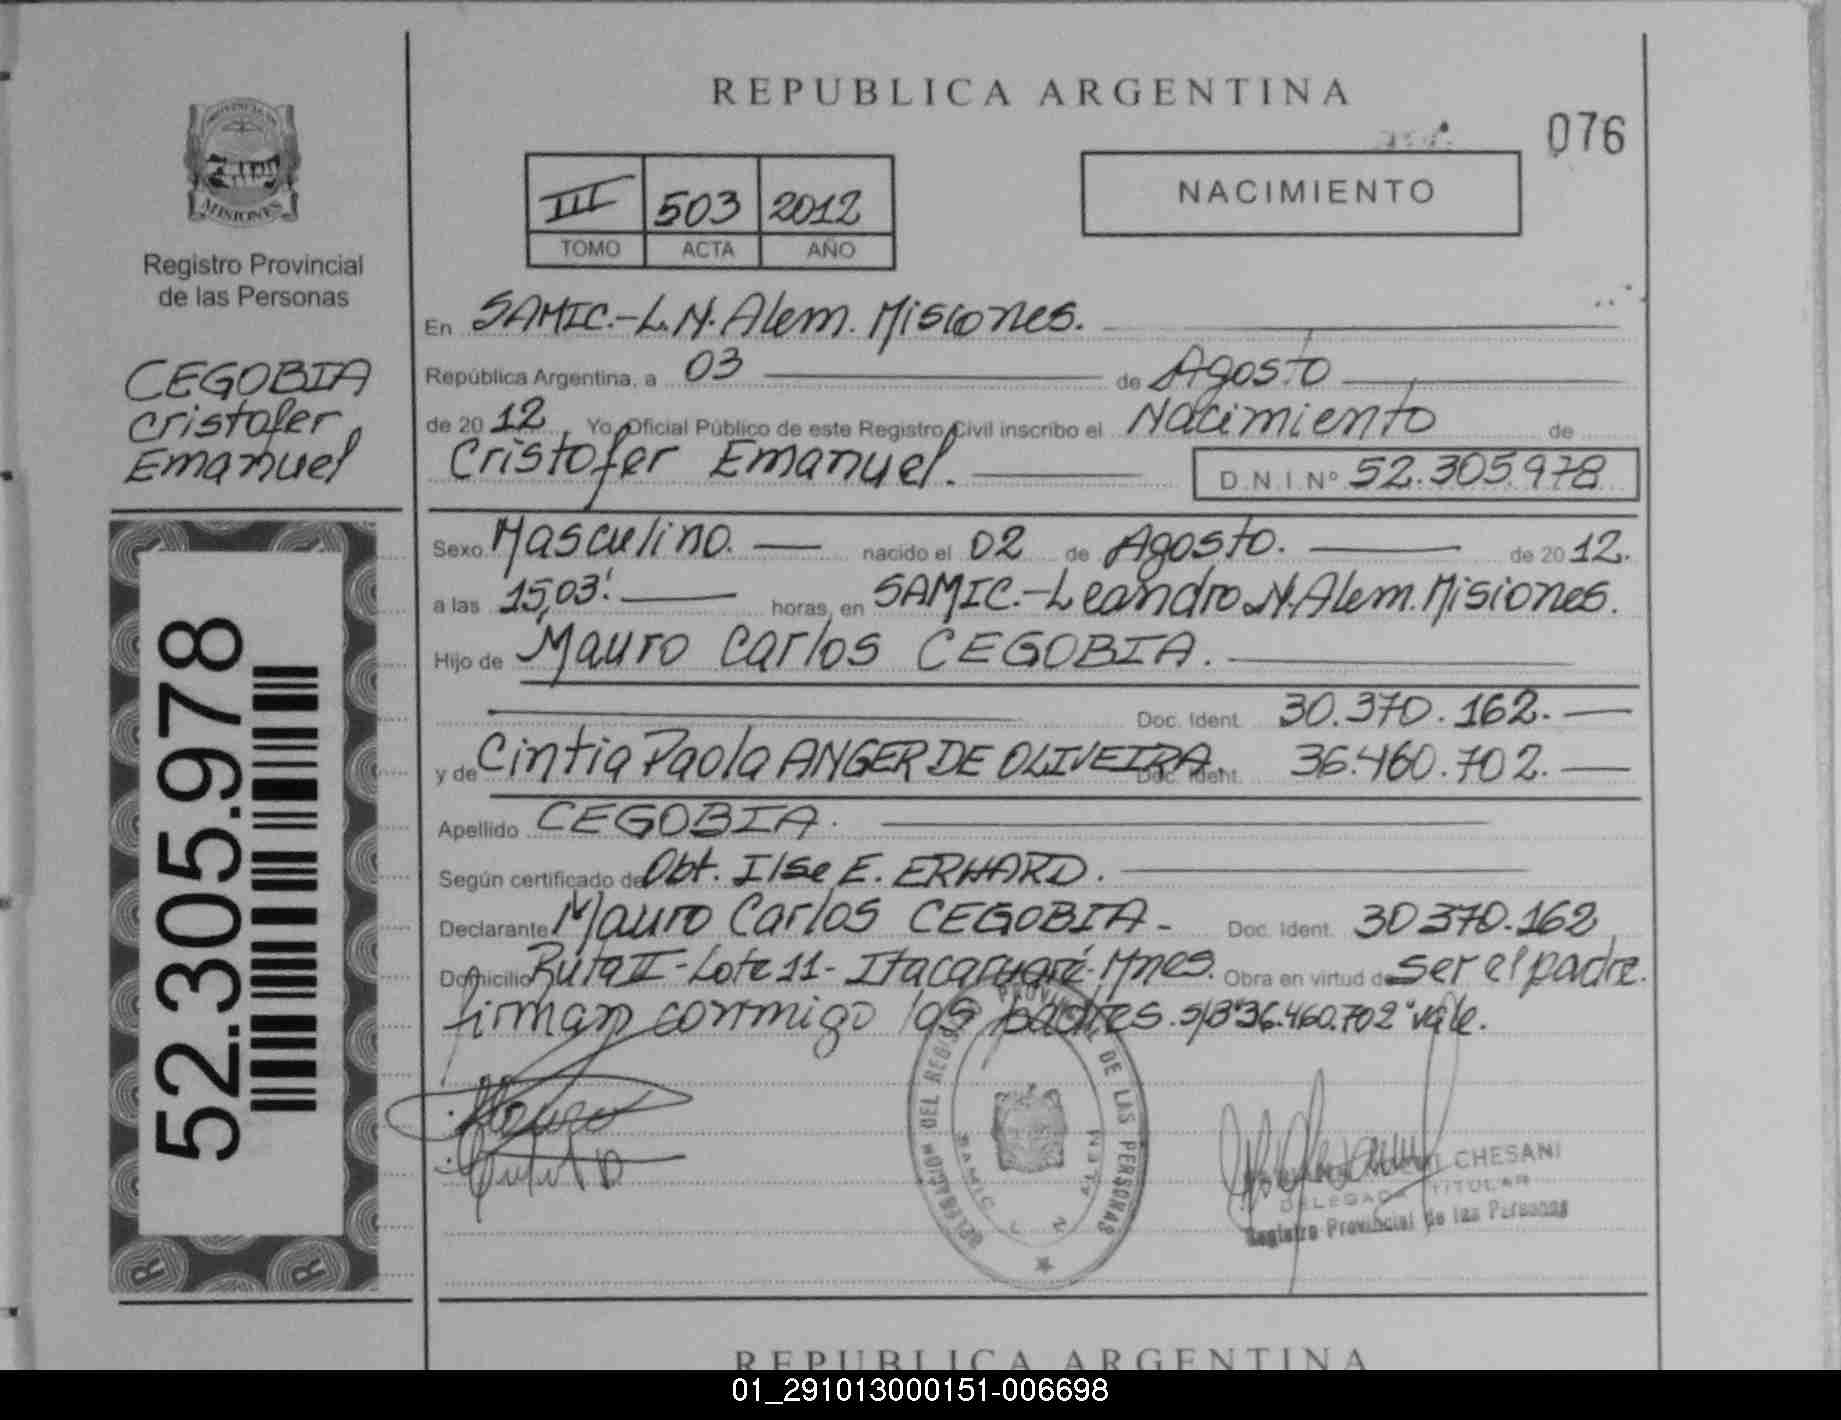 REPUBLICA ARGENTINA
076
PROVINCIA DE
MISIONES
Registro Provincial
de las Personas
III 503 2012
TOMO ACTA AÑO
NACIMIENTO
CEGOBIA
Cristofer
Emanuel
En SAMIC.-L.N. Alem. Misiones.
República Argentina, a 03 de Agosto
de 2012 Yo Oficial Público de este Registro Civil inscribo el Nacimiento de
Cristofer Emanuel. D.N.I. Nº 52.305978
52.305.978
Sexo Masculino. nacido el 02 de Agosto. de 2012.
a las 15,03'. horas, en SAMIC.-Leandro N. Alem. Misiones.
Hijo de Mauro Carlos CEGOBIA.
Doc. Ident. 30.370.162.
y de Cintia Paola ANGER DE OLIVEIRA. Doc. Ident. 36.460.702.
Apellido CEGOBIA.
Según certificado de Obt. Ilse E. ERHARD.
Declarante Mauro Carlos CEGOBIA - Doc. Ident. 30 370.162
Domicilio Ruta II - Lote 11 - Itacaruaré. Mnes. Obra en virtud de ser el padre.
firman conmigo los padres. s/B "36.460.702" vale.
Mauro
DELEGACION DEL REGISTRO PROVINCIAL DE LAS PERSONAS
SAMIC L N ALEM
CHESANI
DELEGADA TITULAR
Registro Provincial de las Personas
R R
REPUBLICA ARGENTINA
01_291013000151-006698